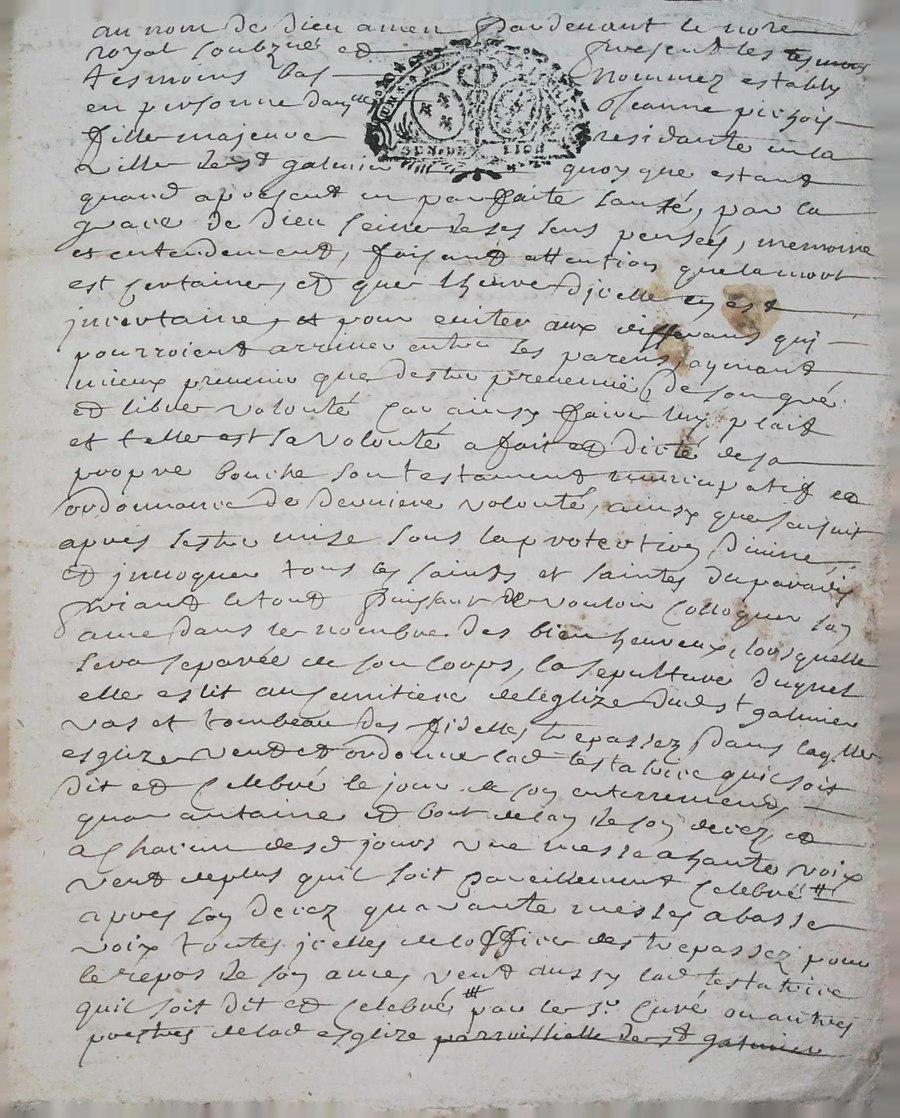 au nom de dieu amen Pardevant le nore
royal soubzne et presend les tesmoins
tesmoins bas nommez estably
en personne damlle Jeanne pichois
fille majeure residante en la
ville de st galmier quoy que estant
quand apresent en parfaite santé, par la
grace de dieu seine de ses sens pensés, memoire
et entendement, faisant attention que la mort
est certaine, et que lheure d'jcelle en est
jncertaine, et pour eviter aux differans quj
pourroient arriver entre les parens aymant
mieux prevenir que destre prevenue, de son gré
et libre volonté car ainsy faire luy plait
et telle est sa volonté a fait et dicté de sa
propre bouche son testament nuncupatif et
ordonnance de derniere volonté, ainsy que sensuit
apres sestre mise sous la protection divine
et jnvoquer tous les saints et saintes du paradis
Priant le tout Puissant de vouloir colloquer son
ame dans le nombre des bienheureux, lorsquelle
sera separée de son corps, la sepulture duquel
elle eslit au semitiere de leglize dud st galmier
vas et tombeau des fidelles trepassez dans laqlle
esglize veut et ordonne lad testatrice quil soit
dit et celebré le jour de son enterrement
quarantaine et bout de lan de son decez, et
a chacun desd jours une messe a haute voix
veut de plus quil soit pareillement celebré #
apres son decez quarante messes a basse
voix toutes jcelles de loffice des trepassez pour
le repos de son ame, veut aussy lad testatrice
quil soit dit et celebré # par le sr. curé ou autres
prestres de lad esglize parroissialle de st galmier